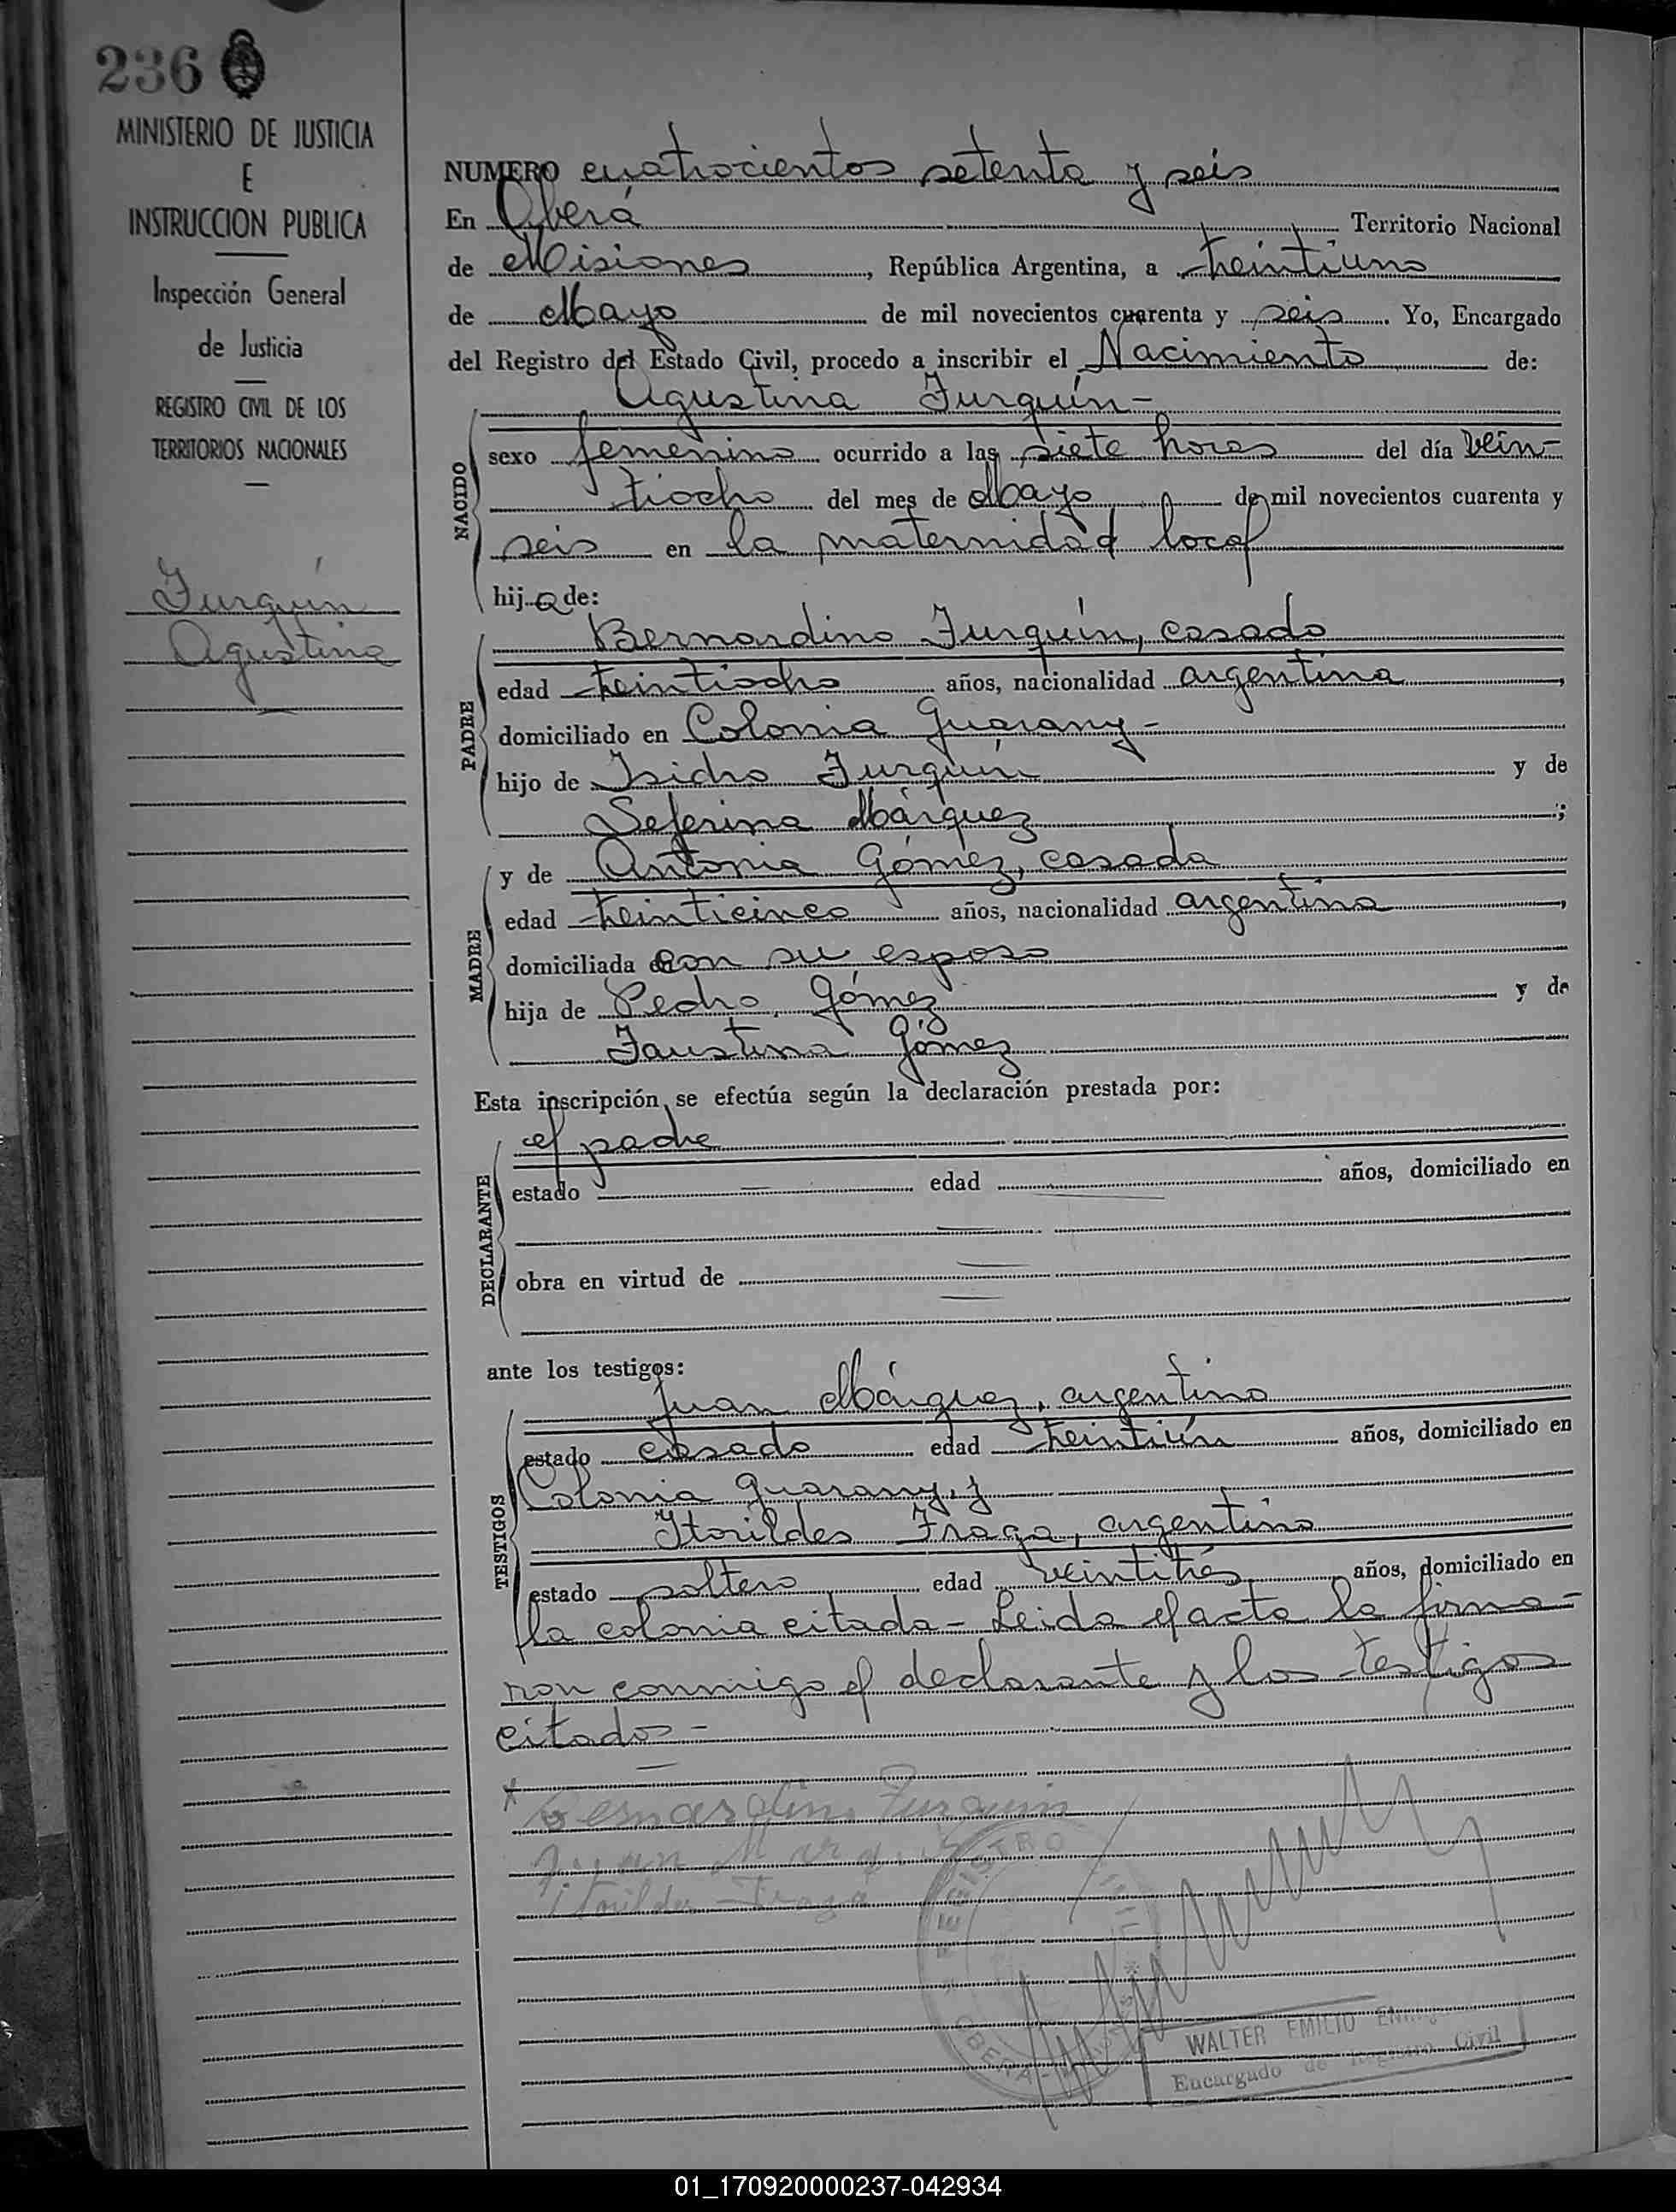 236
MINISTERIO DE JUSTICIA
E
INSTRUCCION PUBLICA
Inspección General
de Justicia
REGISTRO CIVIL DE LOS
TERRITORIOS NACIONALES
Furquín
Agustina
NUMERO cuatrocientos setenta y seis
En Oberá Territorio Nacional
de Misiones, República Argentina, a treintiuno
de Mayo de mil novecientos cuarenta y seis. Yo, Encargado
del Registro del Estado Civil, procedo a inscribir el Nacimiento de:
Agustina Furquín-
NACIDO
sexo femenino ocurrido a las siete horas del día vein-
tiocho del mes de Mayo de mil novecientos cuarenta y
seis en la maternidad local
hija de:
PADRE
Bernardino Furquín, casado
edad treintiocho años, nacionalidad argentina,
domiciliado en Colonia Guarany-
hijo de Isidro Furquín y de
Seferina Márquez;
MADRE
y de Antonia Gómez, casada
edad treinticinco años, nacionalidad argentina,
domiciliada con su esposo
hija de Pedro Gómez y de
Faustina Gómez
Esta inscripción se efectúa según la declaración prestada por:
DECLARANTE
el padre
estado edad años, domiciliado en
obra en virtud de
ante los testigos:
TESTIGOS
Juan Márquez, argentino
estado casado edad treintiún años, domiciliado en
Colonia Guarany, y
Itorildes Fraga, argentino
estado soltero edad veintitrés años, domiciliado en
la colonia citada- Leida el acta la firma-
ron conmigo el declarante y los testigos
citados-
Bernardino Furquin
Juan
Itorildes Fraga
REGISTRO CIVIL
OBERA
WALTER EMILIO
Encargado de Registro Civil
01_170920000237-042934